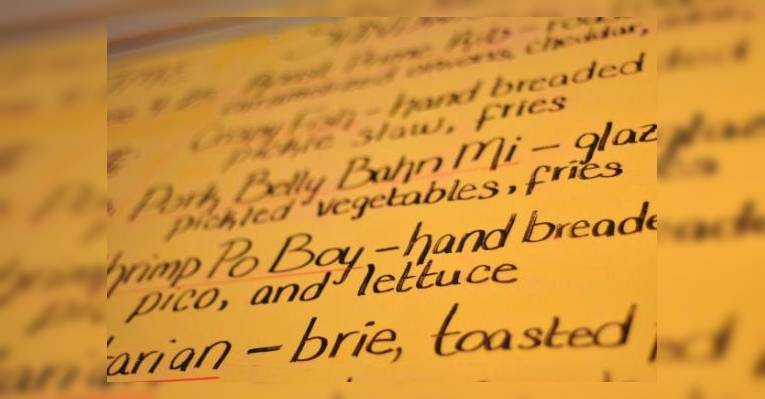 caramelized onions, cheddar,
Crispy Fish - hand breaded
pickle slaw, fries
Pork Belly Bahn Mi - glaz
pickled vegetables, fries
hrimp Po Boy - hand breade
pico, and lettuce
tarian - brie, toasted